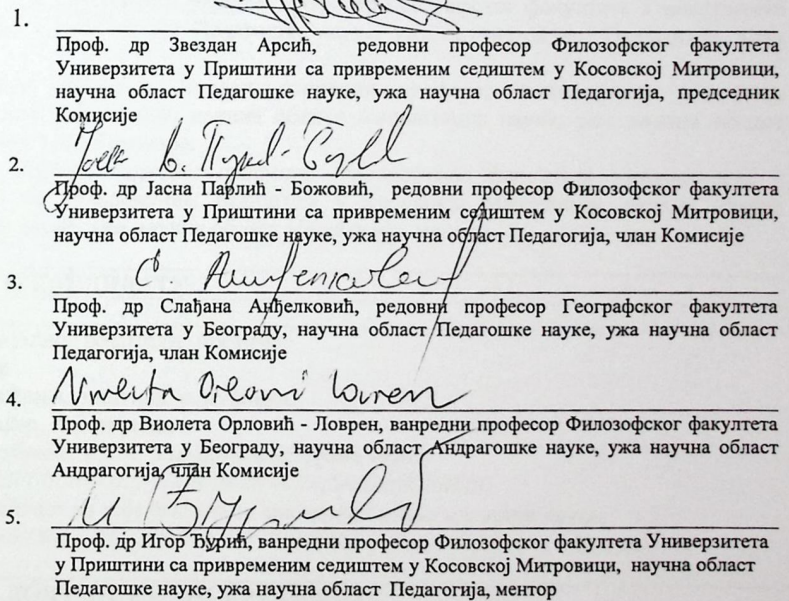 1.
Проф. др Звездан Арсић, редовни професор Филозофског факултета
Универзитета у Приштини са привременим седиштем у Косовској Митровици,
научна област Педагошке науке, ужа научна област Педагогија, председник
Комисије
2.
Проф. др Јасна Парлић - Божовић, редовни професор Филозофског факултета
Универзитета у Приштини са привременим седиштем у Косовској Митровици,
научна област Педагошке науке, ужа научна област Педагогија, члан Комисије
3.
Проф. др Слађана Анђелковић, редовни професор Географског факултета
Универзитета у Београду, научна област Педагошке науке, ужа научна област
Педагогија, члан Комисије
4.
Проф. др Виолета Орловић - Ловрен, ванредни професор Филозофског факултета
Универзитета у Београду, научна област Андрагошке науке, ужа научна област
Андрагогија, члан Комисије
5.
Проф. др Игор Ђурић, ванредни професор Филозофског факултета Универзитета
у Приштини са привременим седиштем у Косовској Митровици, научна област
Педагошке науке, ужа научна област Педагогија, ментор